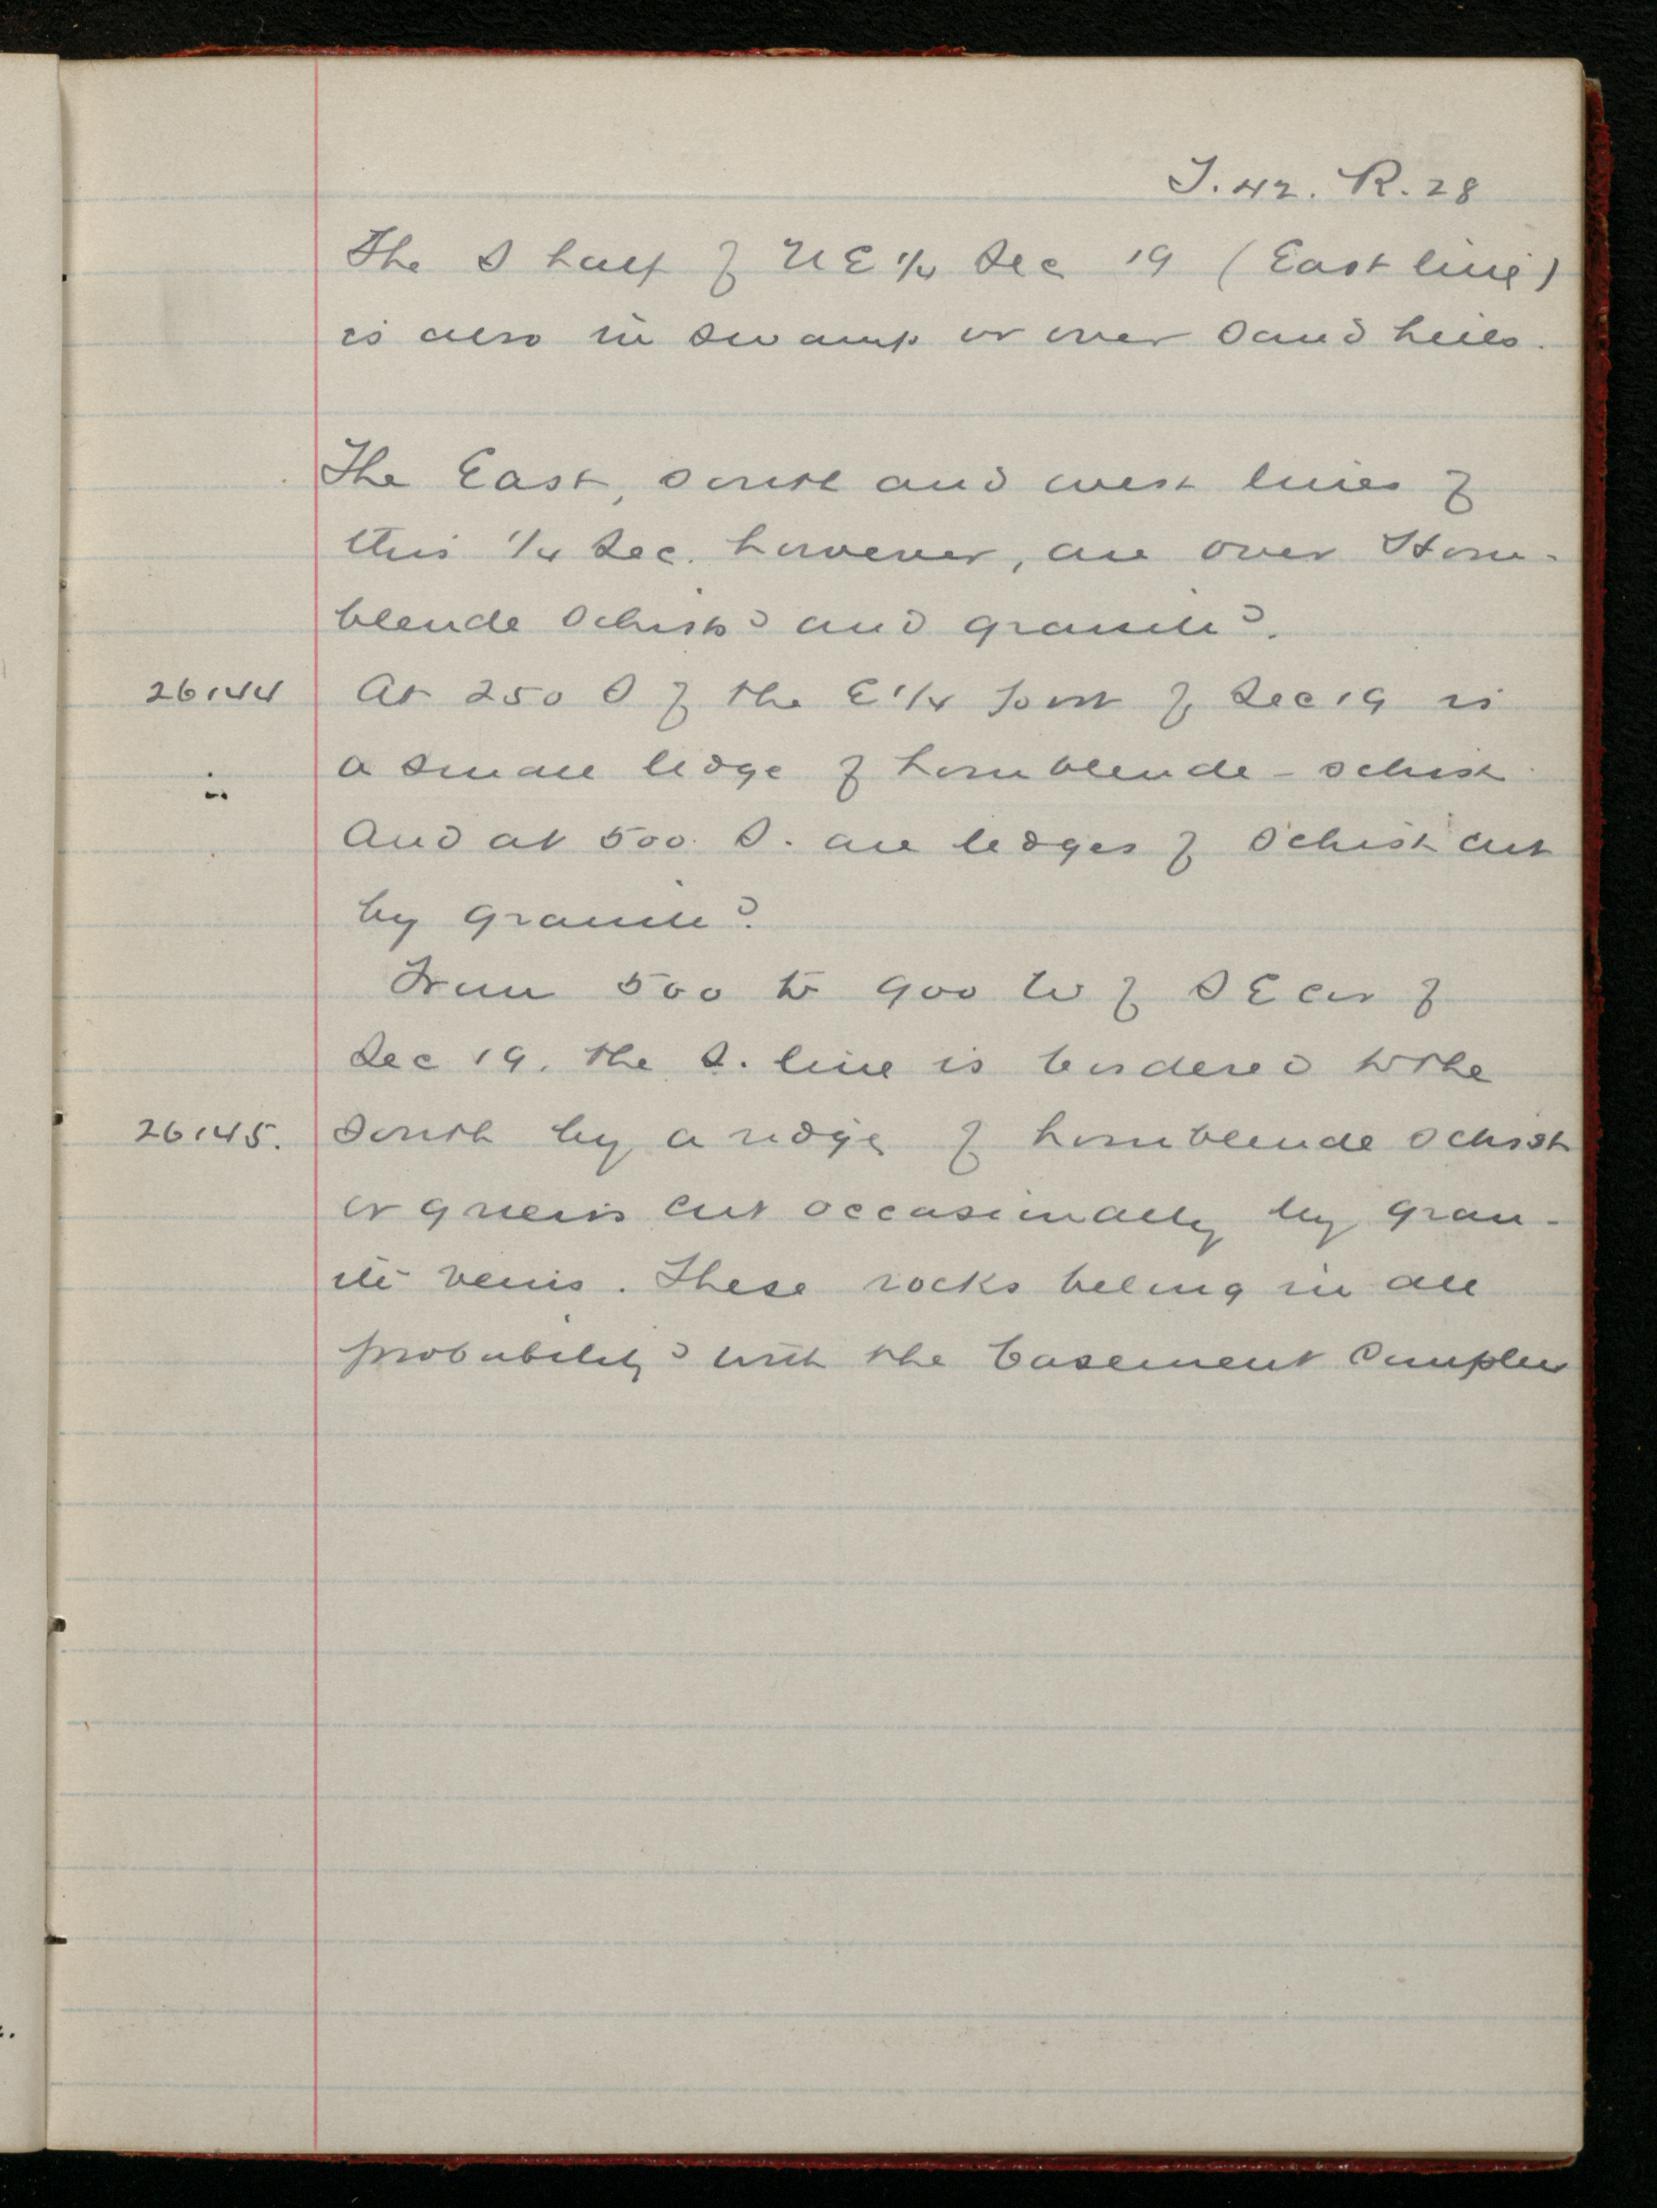 T. 42. R. 28
The S half of NE 1/4 Sec 19 (East line)
is also in swamp or over sand hills.
The East, south and west lines of
this 1/4 Sec. however, are over Horn-
blende schists and granite.
26144 At 250 S of the E 1/4 post of Sec 19 is
a small ledge of hornblende - schist
And at 500 S. are ledges of schist cut
by granite.
From 500 to 900 W of SE cor of
Sec 19, the S. line is bordered to the
26145. South by a ridge of hornblende schist
or gneiss cut occasionally by gran-
ite veins. These rocks belong in all
probability with the basement complex